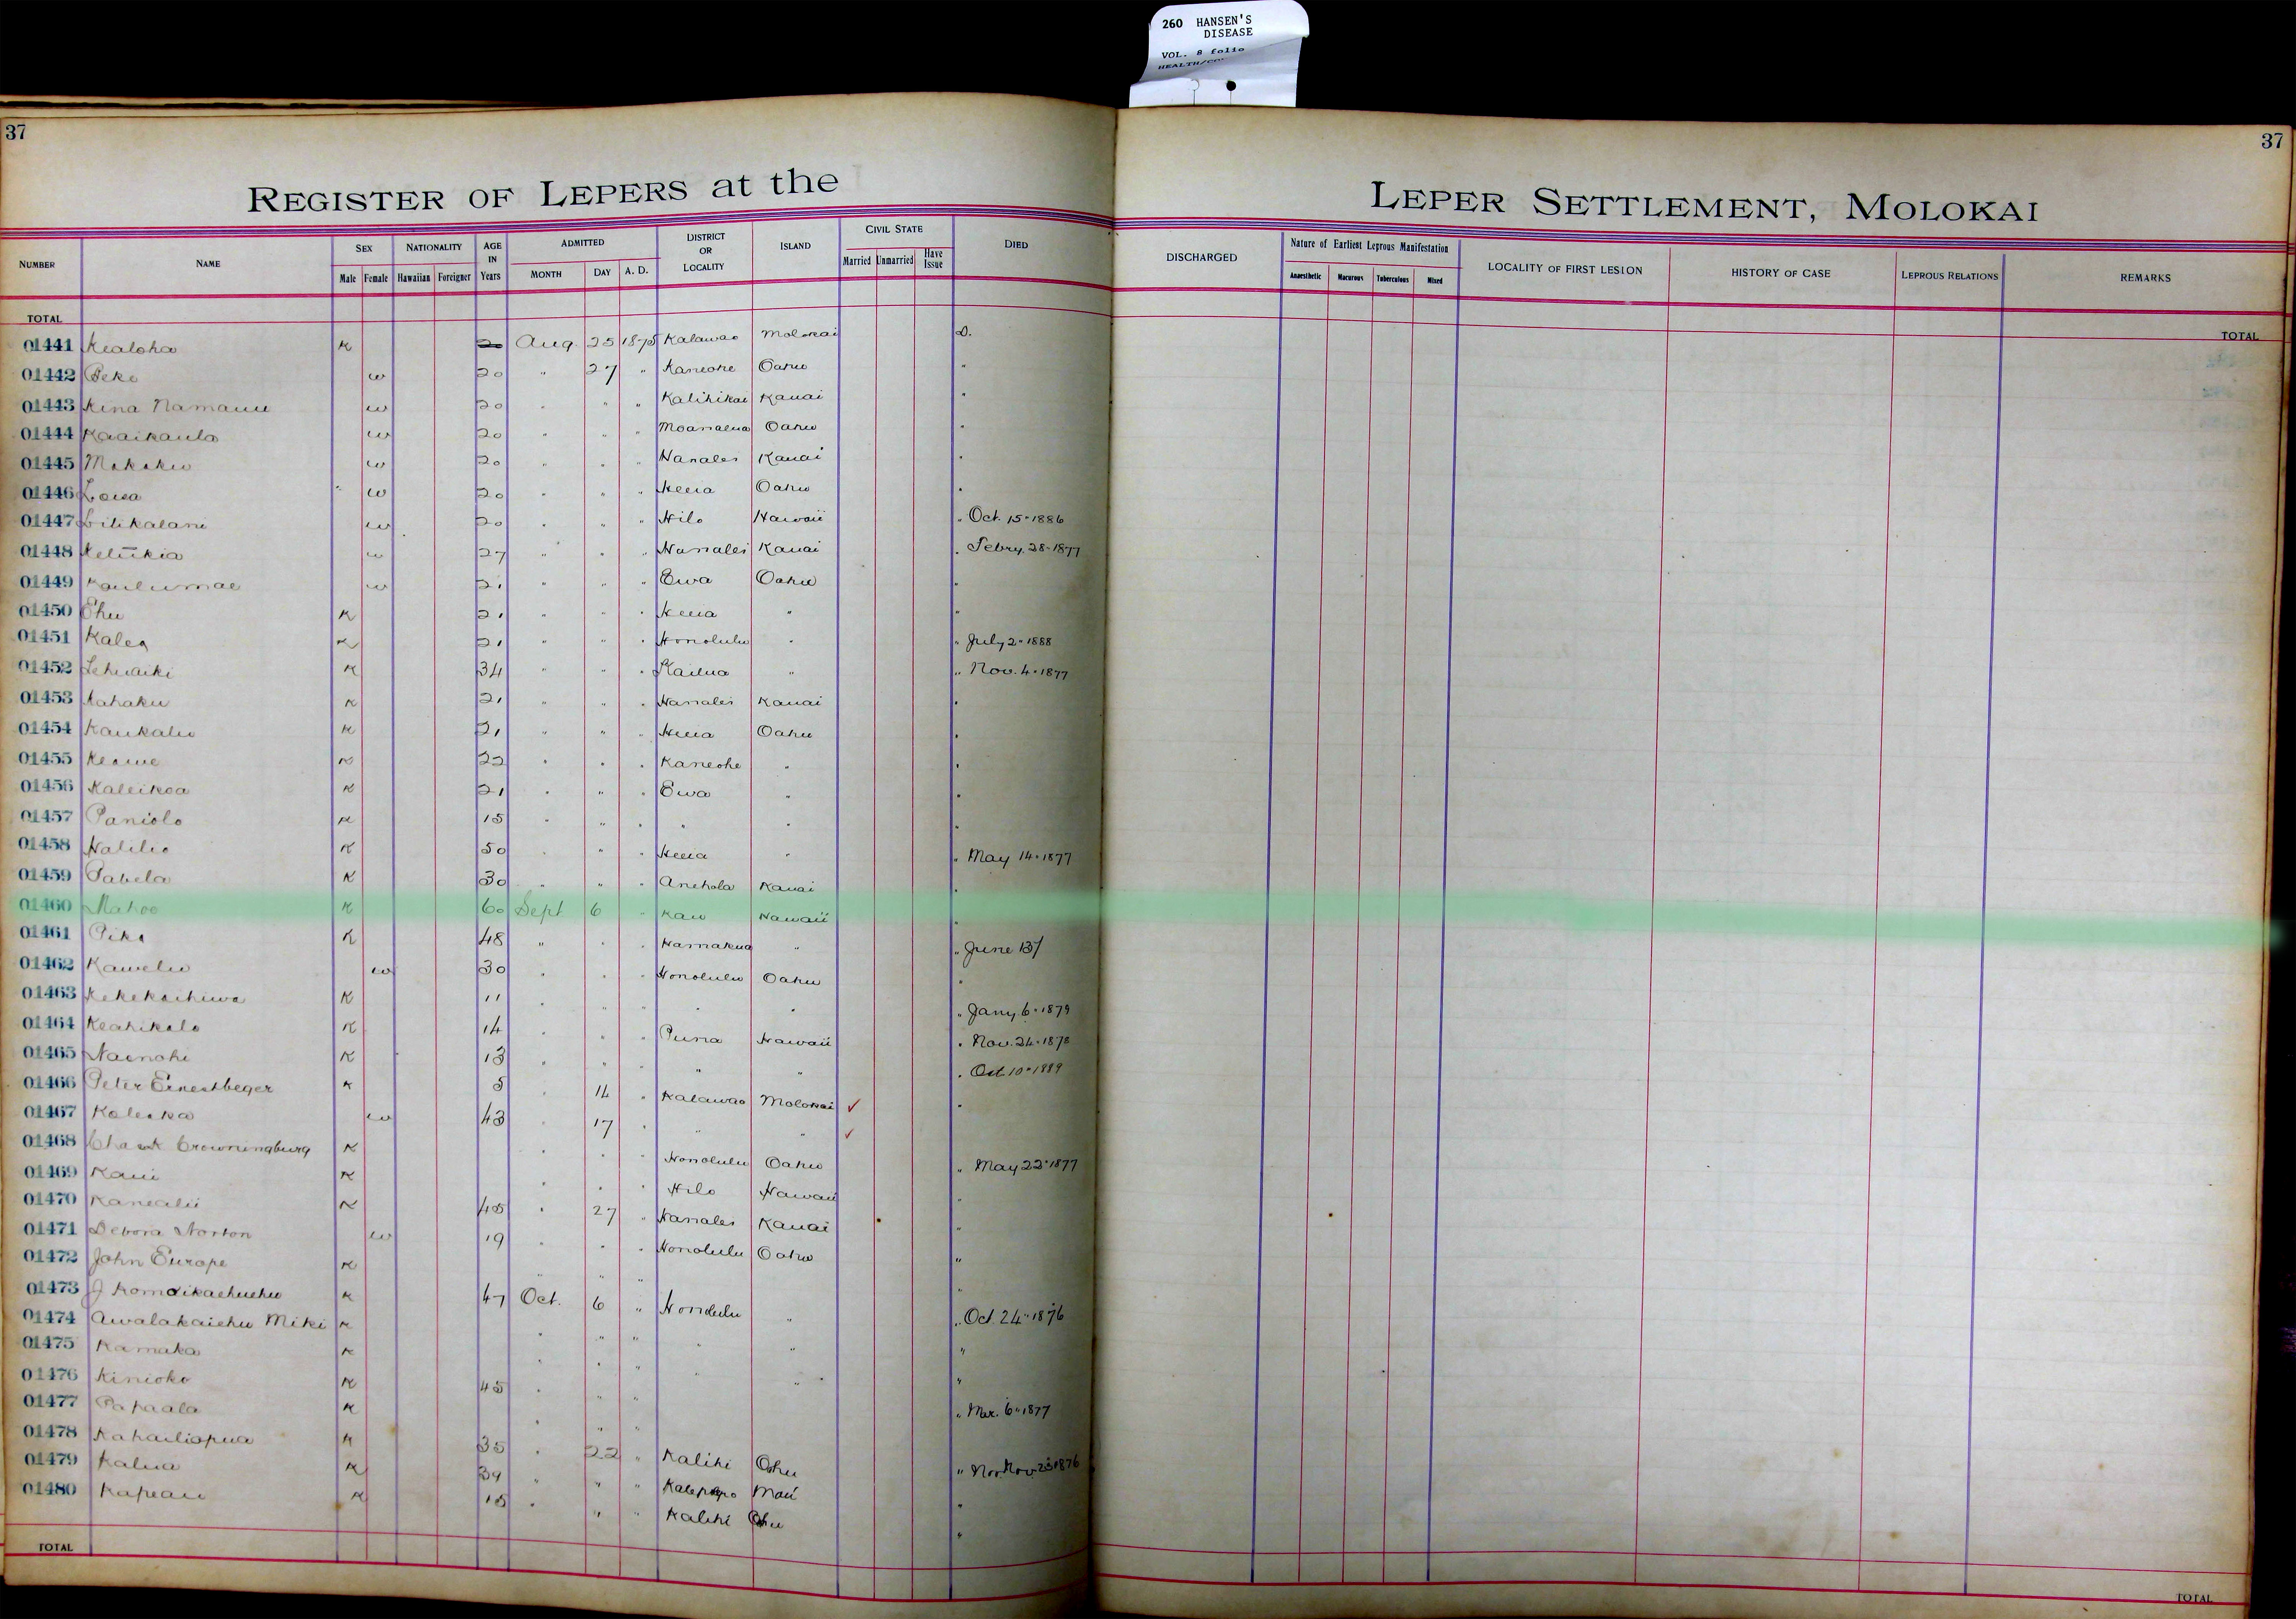 260 HANSEN'S
DISEASE
VOL. 8 folio
37
37
REGISTER OF LEPERS at the
LEPER SETTLEMENT, MOLOKAI
NUMBER NAME SEX Male Female NATIONALITY Hawaiian Foreigner AGE IN Years ADMITTED MONTH DAY A. D. DISTRICT OR LOCALITY ISLAND CIVIL STATE Married Unmarried Have Issue DIED
DISCHARGED Nature of Earliest Leprous Manifestation Anaesthetic Macurous Tuberculous Mixed LOCALITY OF FIRST LESION HISTORY OF CASE LEPROUS RELATIONS REMARKS
TOTAL
TOTAL
01441 Kealoha K 20 Aug. 25 1875 Kalawao Molokai D.
01442 Peke w 20 " 27 " Kaneohe Oahu "
01443 Kina Namauu w 20 " " " Kalihikai Kauai "
01444 Kaaikaula w 20 " " " Moanalua Oahu "
01445 w 20 " " " Hanalei Kauai "
01446 Loisa w 20 " " " Heeia Oahu "
01447 Lilikalani w 20 " " " Hilo Hawaii " Oct. 15 " 1886
01448 Keliikia w 27 " " " Hanalei Kauai " Febry. 28 " 1877
01449 Kaulumae w 21 " " " Ewa Oahu "
01450 Ehu K 21 " " " Heeia " "
01451 Kalea K 21 " " " Honolulu " " July 2 " 1888
01452 Lehuaiki K 34 " " " Kailua " " Nov. 4 " 1877
01453 Kahaku K 21 " " " Hanalei Kauai "
01454 Kaukaliu K 21 " " " Heeia Oahu "
01455 Keawe K 22 " " " Kaneohe " "
01456 Kaleikoa K 21 " " " Ewa " "
01457 Paniolo K 15 " " " " " "
01458 Halilio K 50 " " " Heeia " " May 14 " 1877
01459 Pabela K 30 " " " Anehola Kauai "
01460 Mahoe K 60 Sept 6 " Kau Hawaii "
01461 Pika K 48 " " " Hamakua " " June 13/
01462 Kawelu w 30 " " " Honolulu Oahu "
01463 Kekekachiwa K 11 " " " " " " Jany. 6 " 1879
01464 Keahikolo K 14 " " " Puna Hawaii " Nov. 24 " 1878
01465 Nainohi K 13 " " " " " " Oct 10 " 1889
01466 Peter Ernestbeger K 5 " 14 " Kalawao Molokai ✓ "
01467 Kaleika w 43 " 17 " " " ✓
01468 Crowningburg K " " " Honolulu Oahu " May 22 " 1877
01469 Kaui K " " " Hilo Hawaii "
01470 Kanealii K 45 " 27 " Hanalei Kauai "
01471 Debora Norton w 19 " " " Honolulu Oahu "
01472 John Europe K " " " "
01473 J K 47 Oct. 6 " Honolulu " " Oct. 24 " 1876
01474 Awalakaiehu Miki K " " " " " "
01475 Kamaka K " " " " " "
01476 Kinioko K 45 " " " " Mar. 6 " 1877
01477 Papaala K " " "
01478 Kahailiopua K 35 " 22 " Kalihi Oahu " Nov. 23 1876
01479 Kalua K 39 " " " Kalepolepo Maui "
01480 Kapeau K 15 " " " Kalihi Oahu "
TOTAL
TOTAL